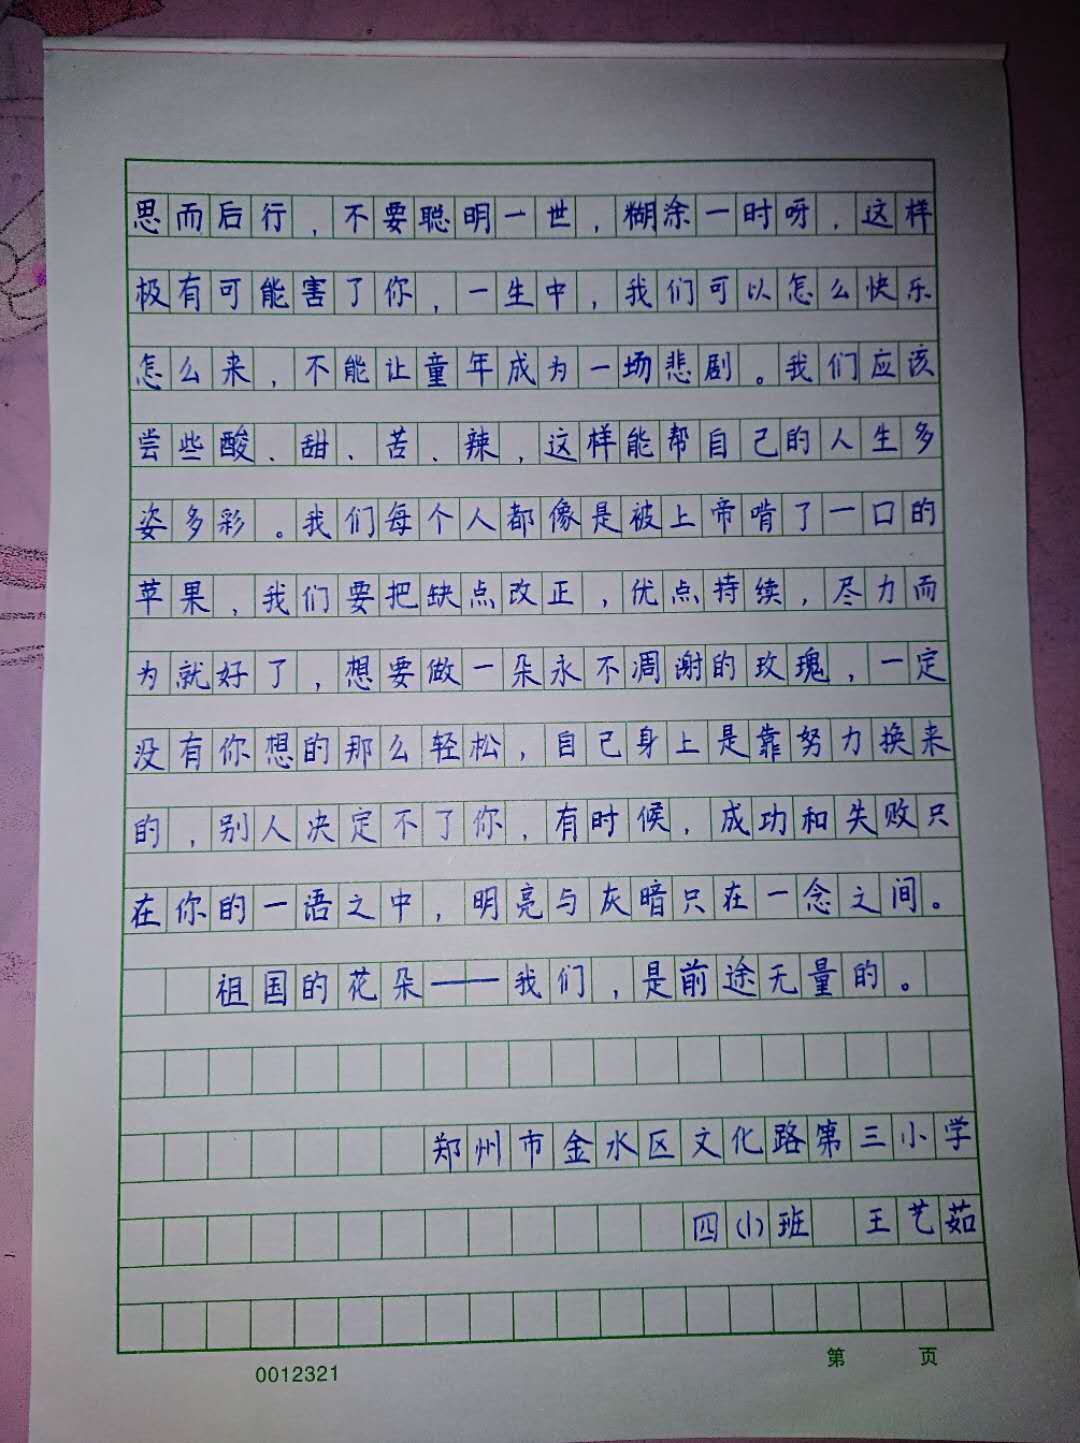 思而后行，不要聪明一世，糊涂一时呀，这样
极有可能害了你，一生中，我们可以怎么快乐
怎么来，不能让童年成为一场悲剧。我们应该
尝些酸、甜、苦、辣，这样能帮自己的人生多
姿多彩。我们每个人都像是被上帝啃了一口的
苹果，我们要把缺点改正，优点持续，尽力而
为就好了，想要做一朵永不凋谢的玫瑰，一定
没有你想的那么轻松，自己身上是靠努力换来
的，别人决定不了你，有时候，成功和失败只
在你的一语之中，明亮与灰暗只在一念之间。
祖国的花朵——我们，是前途无量的。
郑州市金水区文化路第三小学
四(1)班 王艺茹
0012321 第 页